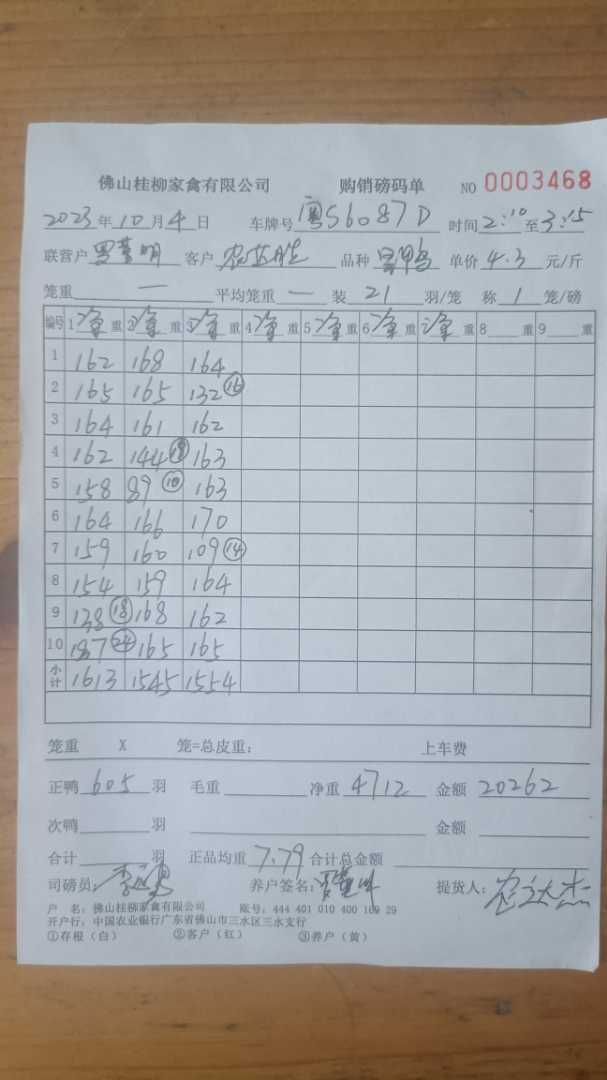 佛山桂柳家禽有限公司 购销磅码单 NO 0003468
2023年10月4日 车牌号 粤S6087D 时间 2:10 至 3:15
联营户 客户 品种 单价 4.3 元/斤
笼重 一 平均笼重 一 装 21 羽/笼 称 1 笼/磅
编号 1 净重 2 净重 3 净重 4 净重 5 净重 6 净重 净重 8 重 9 重
1 162 168 164
2 165 165 132 ⑯
3 164 161 162
4 162 144 ⑱ 163
5 158 89 ⑩ 163
6 164 166 170
7 159 160 109 ⑭
8 154 159 164
9 138 ⑱ 168 162
10 187 ㉔ 165 165
小计 1613 1545 1554
笼重 X 笼=总皮重: 上车费
正鸭 605 羽 毛重 净重 4712 金额 20262
次鸭 羽 金额
合计 羽 正品均重 7.79 合计总金额
司磅员: 养户签名: 提货人:
户 名: 佛山桂柳家禽有限公司 账号: 444 401 010 400 169 29
开户行: 中国农业银行广东省佛山市三水区三水支行
①存根（白） ②客户（红） ③养户（黄）